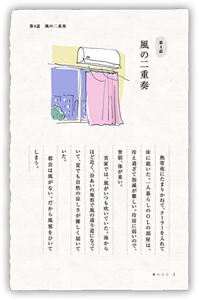 第4話　風の二重奏
第4話
風の二重奏
熱帯夜にたまりかねて、クーラーを入れて
床に就いた。一人暮らしのOLの部屋は、
冷え過ぎて加減が難しい。冷房に弱いので、
翌朝、体が重い。
実家では、風がいつも吹いていた。海から
ほど近く、谷あいの地形で風の通り道になって
いて、夏でも自然の涼しさが優しく届いて
いた。
都会は風がない。だから風邪をひいて
しまう。
1